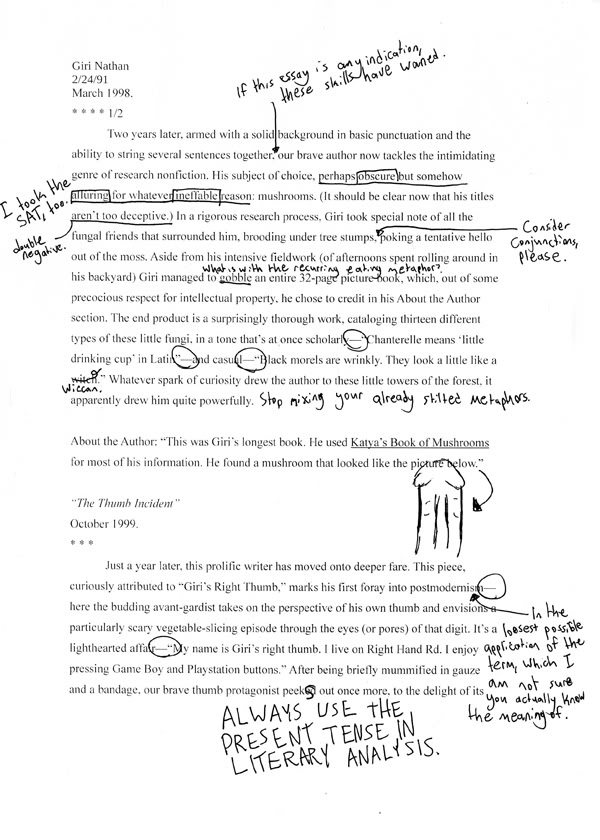 Giri Nathan
2/24/91
March 1998.
* * * * 1/2
If this essay is any indication,
these skills have waned.
Two years later, armed with a solid background in basic punctuation and the
ability to string several sentences together, our brave author now tackles the intimidating
genre of research nonfiction. His subject of choice, perhaps obscure but somehow
alluring for whatever ineffable reason: mushrooms. (It should be clear now that his titles
aren't too deceptive.) In a rigorous research process, Giri took special note of all the
fungal friends that surrounded him, brooding under tree stumps, poking a tentative hello
out of the moss. Aside from his intensive fieldwork (of afternoons spent rolling around in
his backyard) Giri managed to gobble an entire 32-page picture-book, which, out of some
precocious respect for intellectual property, he chose to credit in his About the Author
section. The end product is a surprisingly thorough work, cataloging thirteen different
types of these little fungi, in a tone that's at once scholarly—"Chanterelle means 'little
drinking cup' in Latin"—and casual—"Black morels are wrinkly. They look a little like a
witch." Whatever spark of curiosity drew the author to these little towers of the forest, it
apparently drew him quite powerfully.
I took the
SAT, too.
double
negative.
Consider
Conjunctions,
please.
What is with the recurring eating metaphors.
Wiccan.
Stop mixing your already stilted metaphors.
About the Author: "This was Giri's longest book. He used Katya's Book of Mushrooms
for most of his information. He found a mushroom that looked like the picture below."
"The Thumb Incident"
October 1999.
* * *
Just a year later, this prolific writer has moved onto deeper fare. This piece,
curiously attributed to "Giri's Right Thumb," marks his first foray into postmodernism—
here the budding avant-gardist takes on the perspective of his own thumb and envisions a
particularly scary vegetable-slicing episode through the eyes (or pores) of that digit. It's a
lighthearted affair—"My name is Giri's right thumb. I live on Right Hand Rd. I enjoy
pressing Game Boy and Playstation buttons." After being briefly mummified in gauze
and a bandage, our brave thumb protagonist peeks out once more, to the delight of its
In the
loosest possible
application of the
term, which I
am not sure
you actually know
the meaning of.
ALWAYS USE THE
PRESENT TENSE IN
LITERARY ANALYSIS.